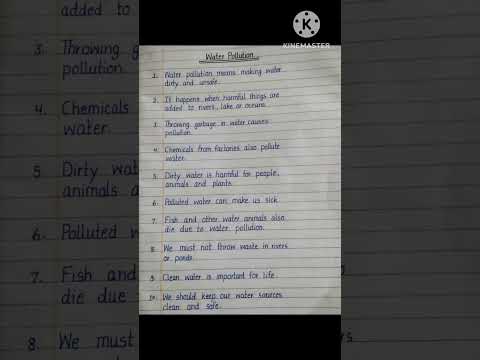 KINEMASTER
Water Pollution
1. Water pollution means making water
dirty and unsafe.
2. It happens when harmful things are
added to rivers, lake or oceans.
3. Throwing garbage in water causes
pollution.
4. Chemicals from factories also pollute
water.
5. Dirty water is harmful for people,
animals and plants.
6. Polluted water can make us sick.
7. Fish and other water animals also
die due to water pollution.
8. We must not throw waste in rivers
or ponds.
9. Clean water is important for life.
10. We should keep our water sources
clean and safe.
added to
3. Throwing g
pollution.
4. Chemicals
water.
5. Dirty wat
animals a
6. Polluted w
7. Fish and
die due
8. We must